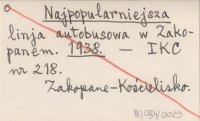 Najpopularniejsza
linja autobusowa w Zako-
panem. 1938. — IKC
nr 218.
Zakopane-Kościelisko.